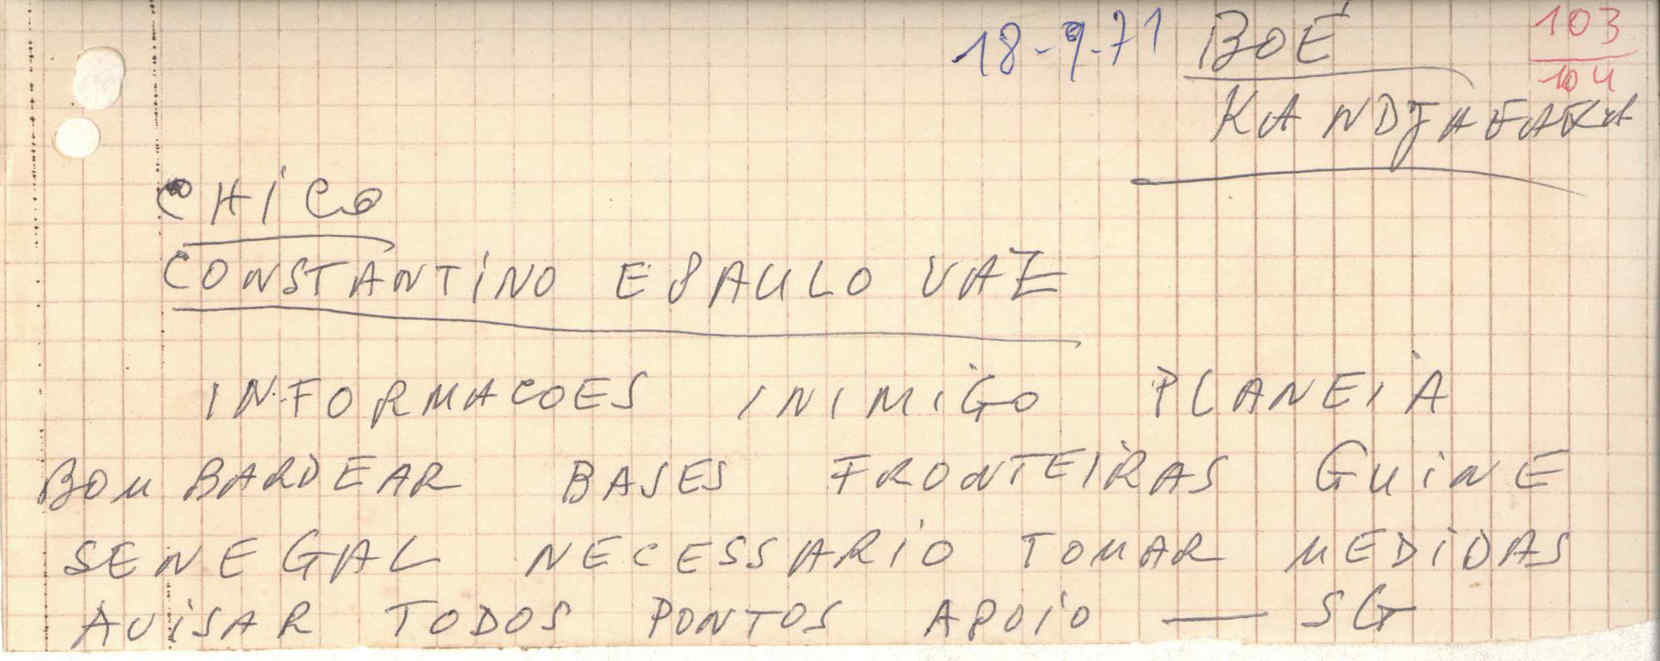 18-9-71 BOÉ 103
104
KANDJAFARA
CHICO
CONSTANTINO E PAULO VAZ
INFORMACOES INIMIGO PLANEIA
BOMBARDEAR BASES FRONTEIRAS GUINE
SENEGAL NECESSARIO TOMAR MEDIDAS
AVISAR TODOS PONTOS APOIO — SG